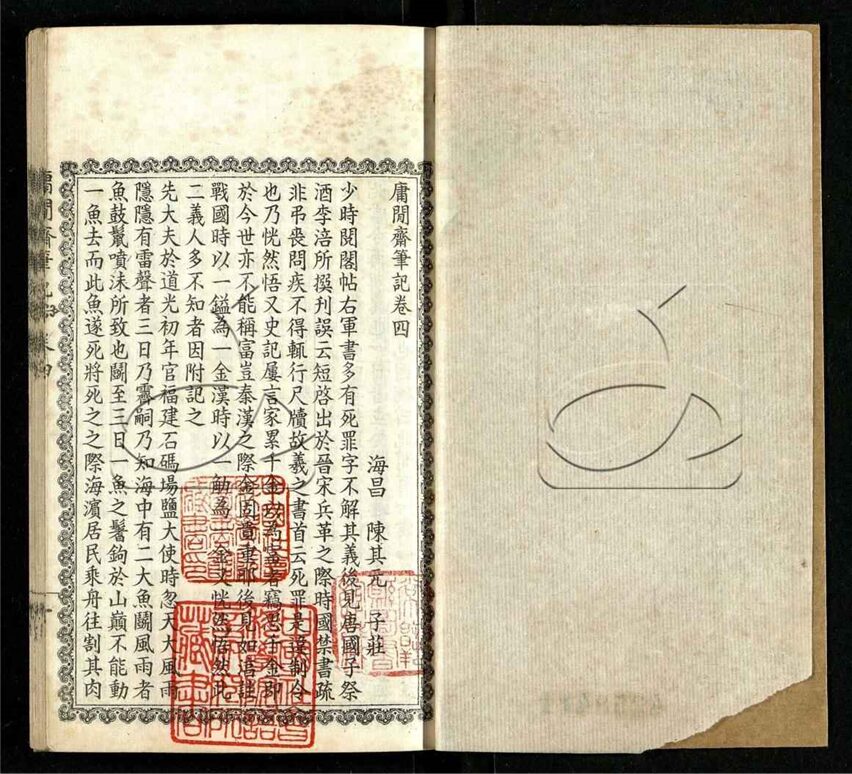 庸閒齋筆記卷四
海昌 陳其元 子莊
少時閱閣帖右軍書多有死罪字不解其義後見唐國子祭
酒李涪所撰刋誤云短啓出於晉宋兵革之際時國禁書疏
非弔喪問疾不得輒行尺牘故羲之書首云死罪是違制令
也乃恍然悟又史記屢言家累千金以為富者竊思千金即
於今世亦不能稱富豈秦漢之際金固貴重耶後見如淳註
戰國時以一鎰為一金漢時以一觔為一金又恍然悟然此
二義人多不知者因附記之
先大夫於道光初年官福建石碼場鹽大使時忽天大風雨
隱隱有雷聲者三日乃霽嗣乃知海中有二大魚鬬風雨者
魚鼓鬣噴沫所致也鬬至三日一魚之鬐鉤於山巔不能動
一魚去而此魚遂死將死之之際海濱居民乘舟往割其肉
庸閒齋筆記 卷四
一